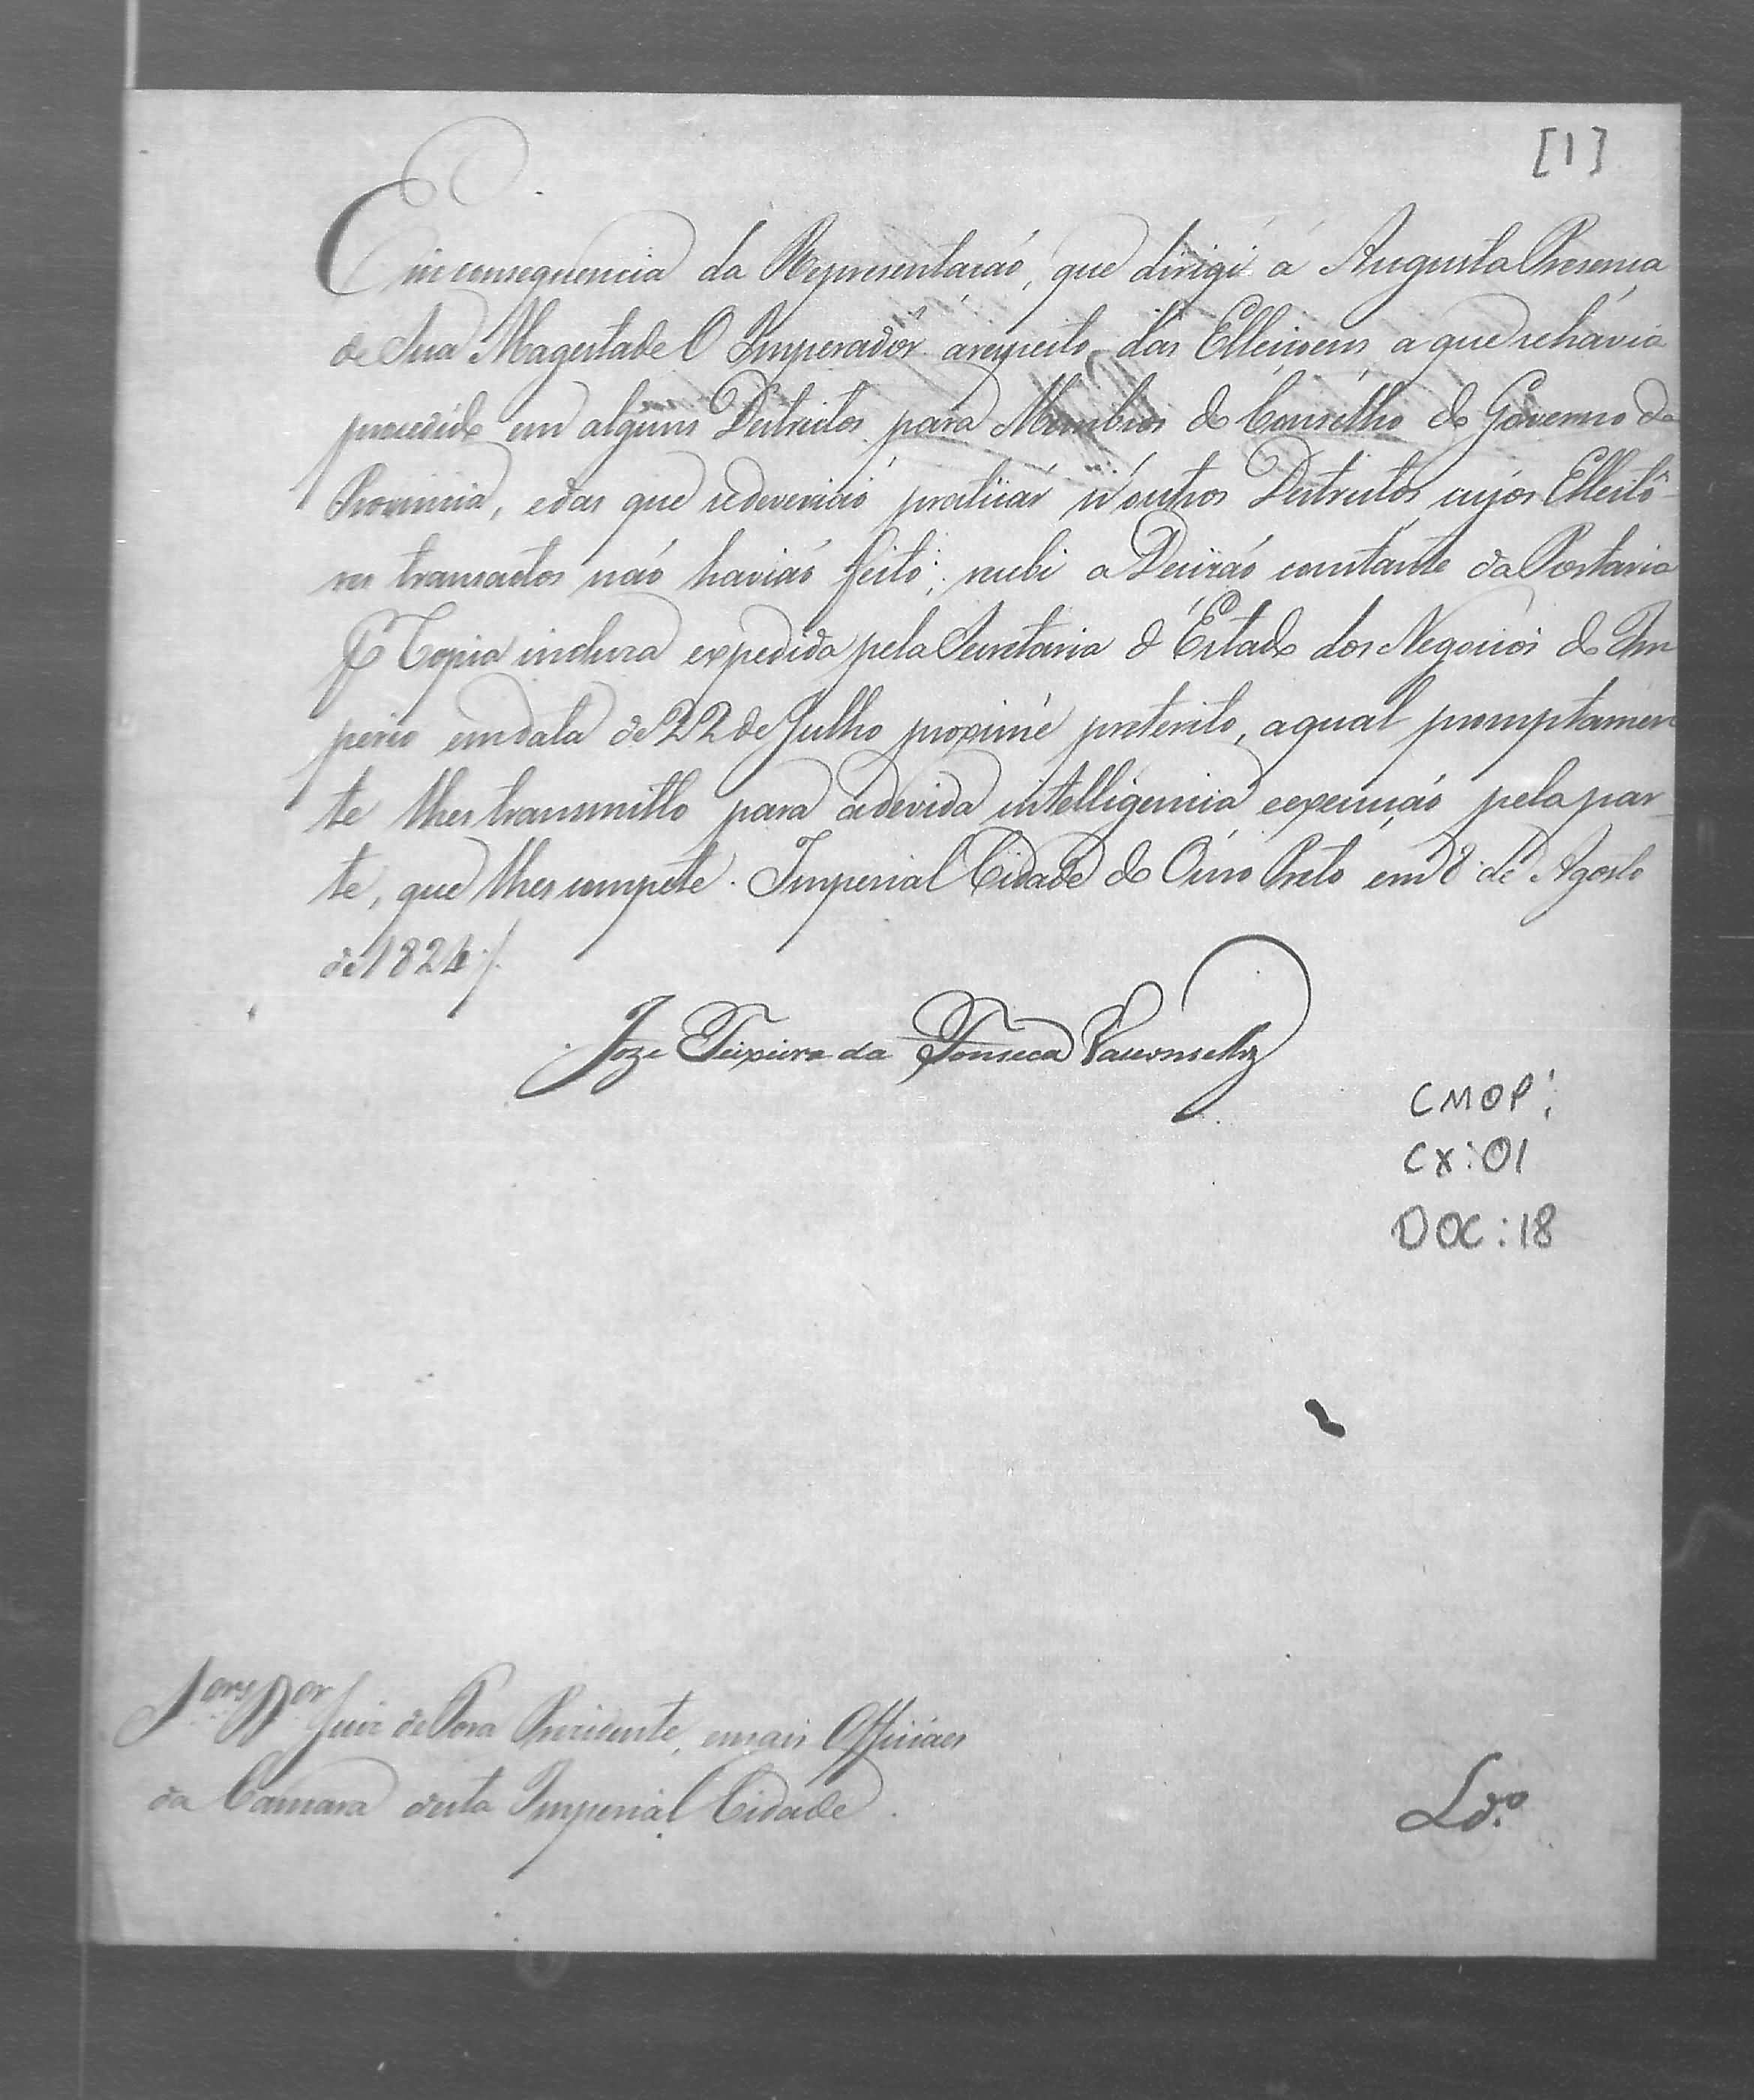 [1]
Em consequencia da Reprezentação, que dirigi á Augusta Presença
de Sua Magestade O Imperador arespeito das Elleiçoens, a que sehavia
procedido em alguns Destrictos para Membros do Conselho do Governo da
Provincia, edas que sedeverião praticar n'outros Destrictos, cujos Elleito-
res transactos não havião feito; recebi a Decizão constante da Portaria
P Copia incluza expedida pela Secretaria d'Estado dos Negocios do Im
perio emdata de 22 de Julho proximé preterito, aqual promptamen
te lhes transmitto para adevida intelligencia eexecução pela par-
te, que lhes compete. Imperial Cidade do Ouro Preto em 8 de Agosto
de 1824 /.
Joze Teixeira da Fonseca Vasconcellos
CMOP:
CX:01
DOC:18
Sores Dor Juiz de Fora Prezidente, emais Officiaes
da Camara desta Imperial Cidade.
Ldo.